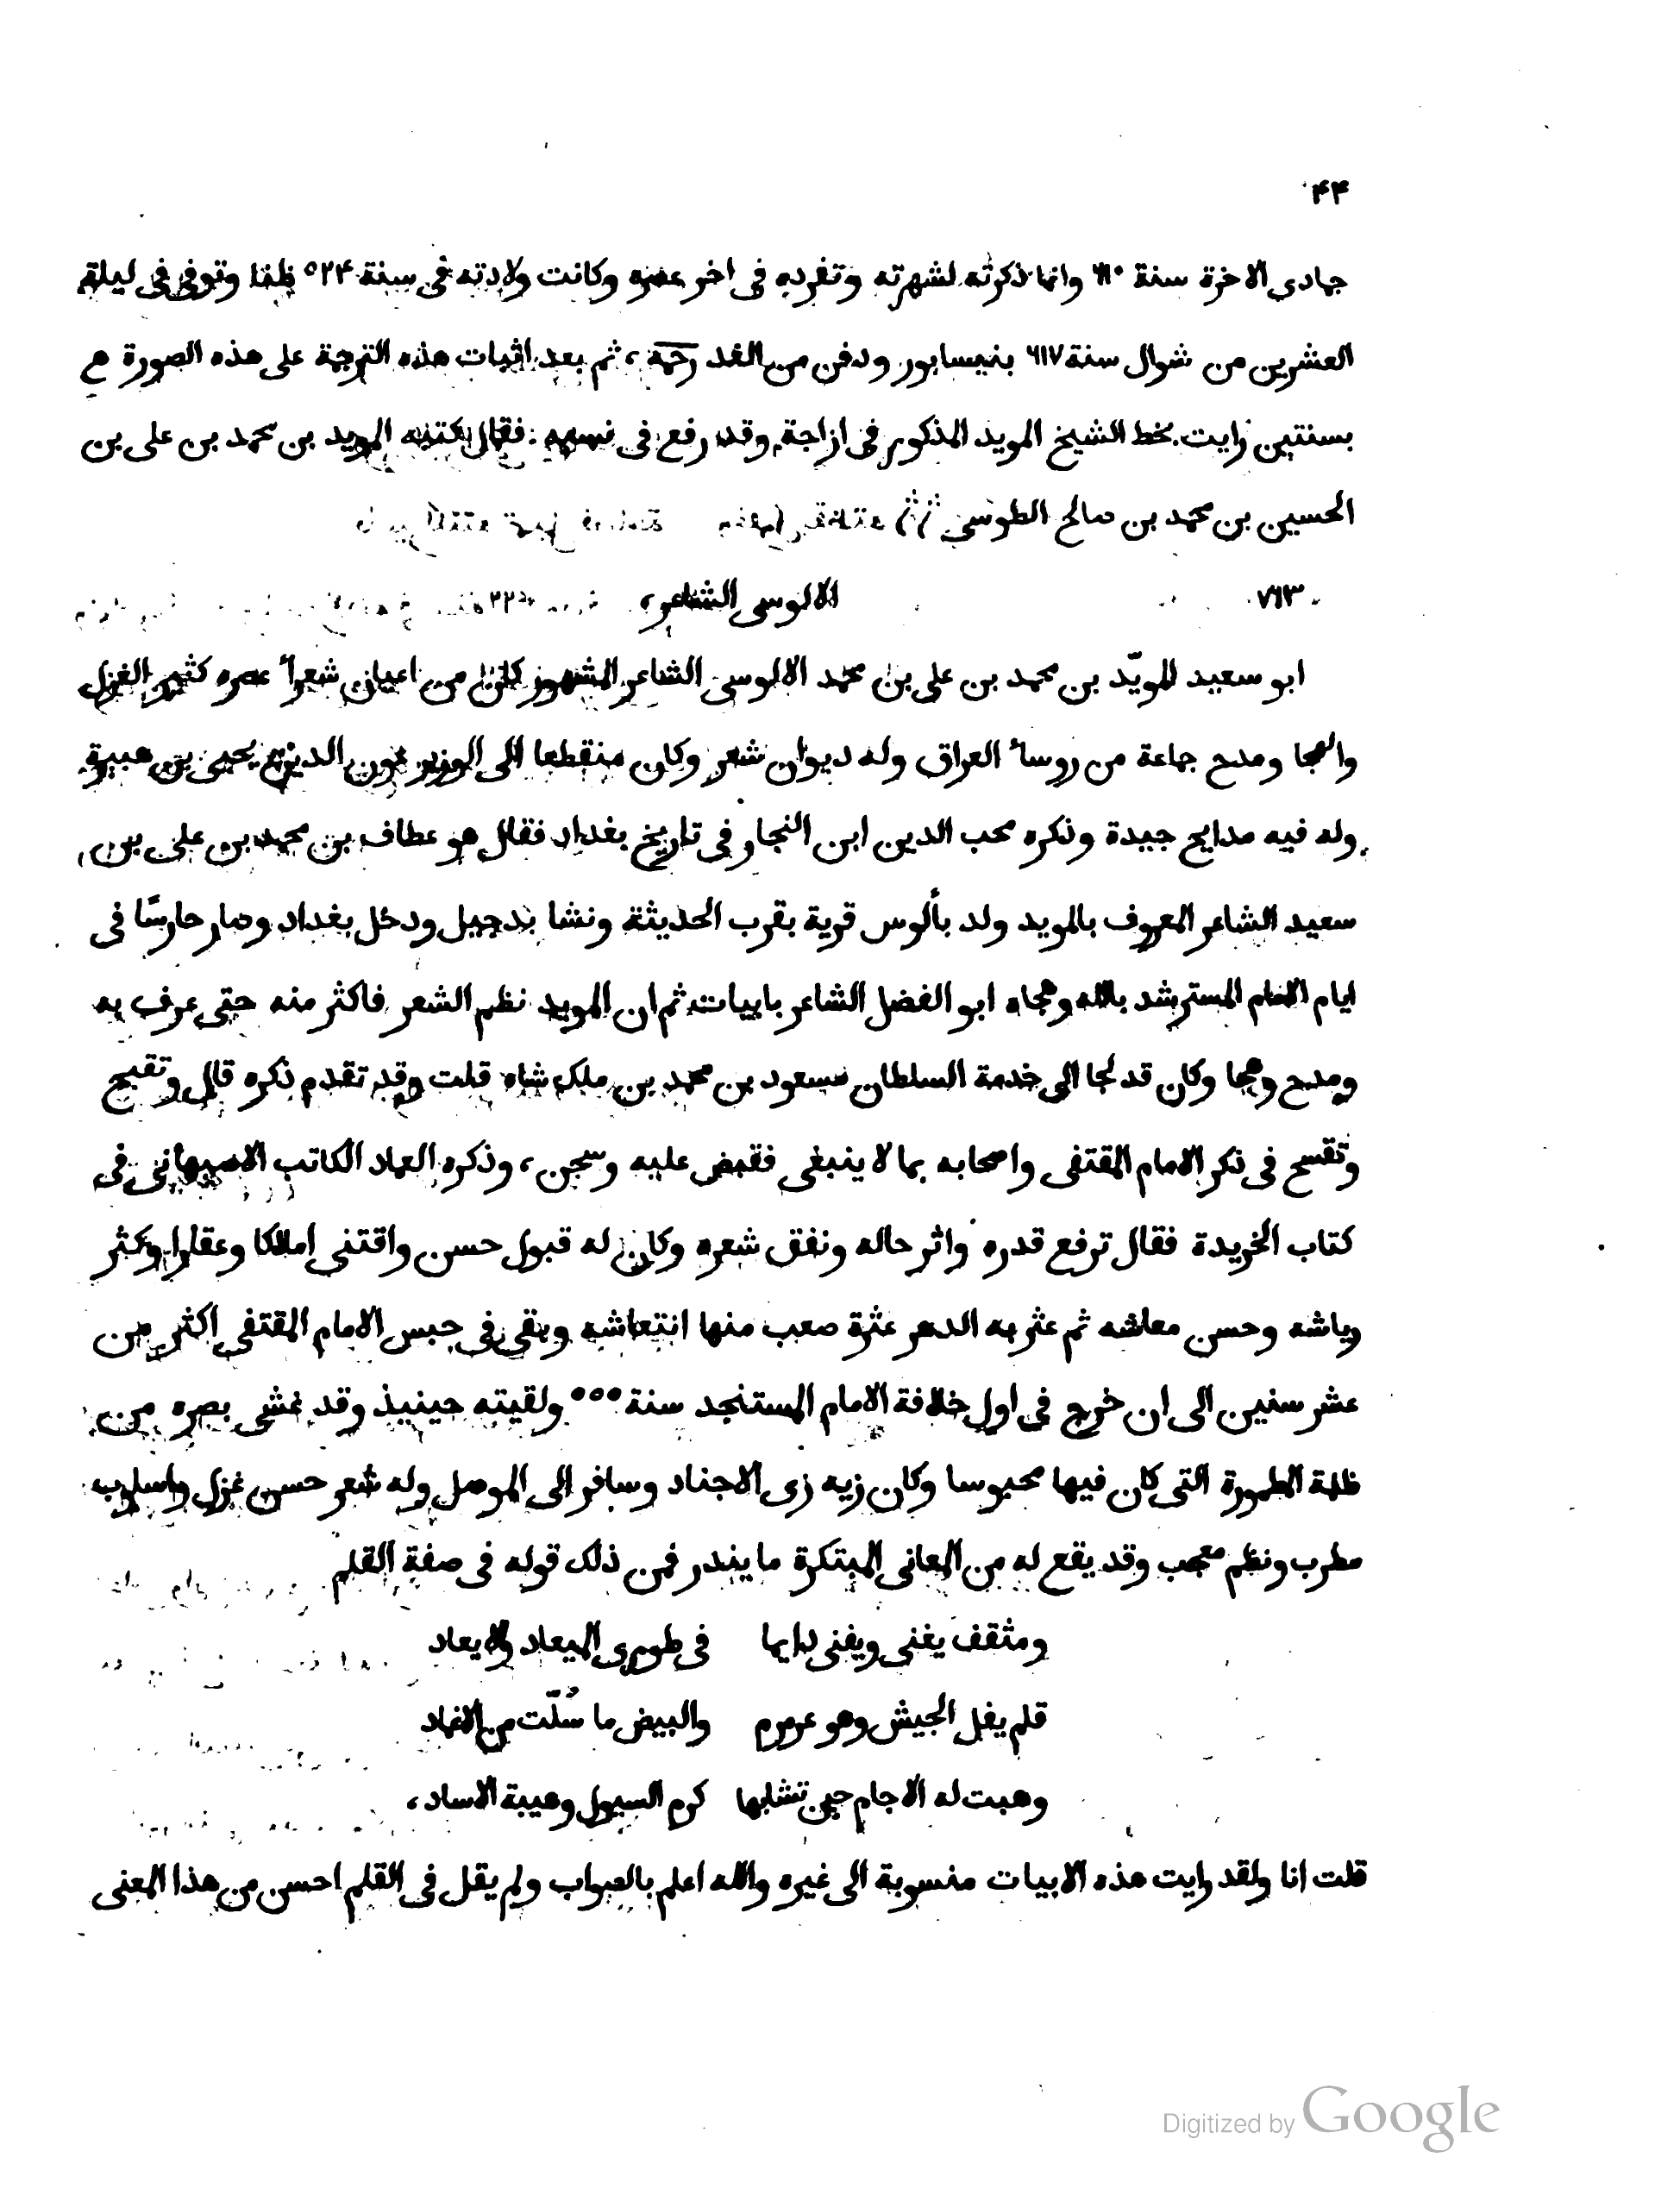 ۴۴
جمادى الاخرة سنة ٦١٠ وانما ذكرته لشهرته وتفرده فى اخر عصره وكانت ولادته فى سنة ٥٢۴ ظنا وتوفى فى ليلة
العشرين من شوال سنة ٦١٧ بنيسابور ودفن من الغد رحمه، ثم بعد اثبات هذه الترجمة على هذه الصورة مع
بسنتين رايت بخط الشيخ المويد المذكور فى ازاجة وقد رفع فى نسبه فقال كتبه المويد بن محمد بن على بن
الحسين بن محمد بن صالح الطوسى
٧٦٣ الالوسى الشاعر،
ابو سعيد المويّد بن محمد بن على بن محمد الالوسى الشاعر المشهور كان من اعيان شعرأ عصره كثير الغزل
والهجا ومدح جماعة من روسأ العراق وله ديوان شعر وكان منقطعا الى الوزير عون الدين يحيى بن هبيرة
وله فيه مدايح جيدة وذكره محب الدين ابن النجار فى تاريخ بغداد فقال هو عطاف بن محمد بن على بن
سعيد الشاعر المعروف بالمويد ولد بألوس قرية بقرب الحديثة ونشا بدجيل ودخل بغداد وصار حارسًا فى
ايام الامام المسترشد بالله وهجاه ابو الفضل الشاعر بابيات ثم ان المويد نظم الشعر فاكثر منه حتى عرف به
ومدح وهجا وكان قد لجا الى خدمة السلطان مسعود بن محمد بن ملك شاه قلت وقد تقدم ذكره قال وتقبح
وتفسح فى ذكر الامام المقتفى واصحابه بما لا ينبغى فقبض عليه وسجن، وذكره العماد الكاتب الاصبهانى فى
كتاب الخريدة فقال ترفع قدره واثر حاله ونفق شعره وكان له قبول حسن واقتنى املاكا وعقارا وكثر
رياشه وحسن معاشه ثم عثر به الدهر عثرة صعب منها انتعاشه وبقى فى حبس الامام المقتفى اكثر من
عشر سنين الى ان خرج فى اول خلافة الامام المستنجد سنة ٥٥٥ ولقيته حينيذ وقد غشى بصره من
ظلمة المطمورة التى كان فيها محبوسا وكان زيه زى الاجناد وسافر الى الموصل وله شعر حسن غزل واسلوب
مطرب ونظم معجب وقد يقع له من المعانى المبتكرة ما يندر فمن ذلك قوله فى صفة القلم
ومثقف يغنى ويفنى دايما فى طورى الميعاد والايعاد
قلم يفل الجيش وهو عرمرم والبيض ما سُلّت من الاغماد
وهبت له الاجام حين نشابها كرم السيول وهيبة الاساد،
قلت انا ولقد رايت هذه الابيات منسوبة الى غيره والله اعلم بالصواب ولم يقل فى القلم احسن من هذا المعنى
Digitized by Google